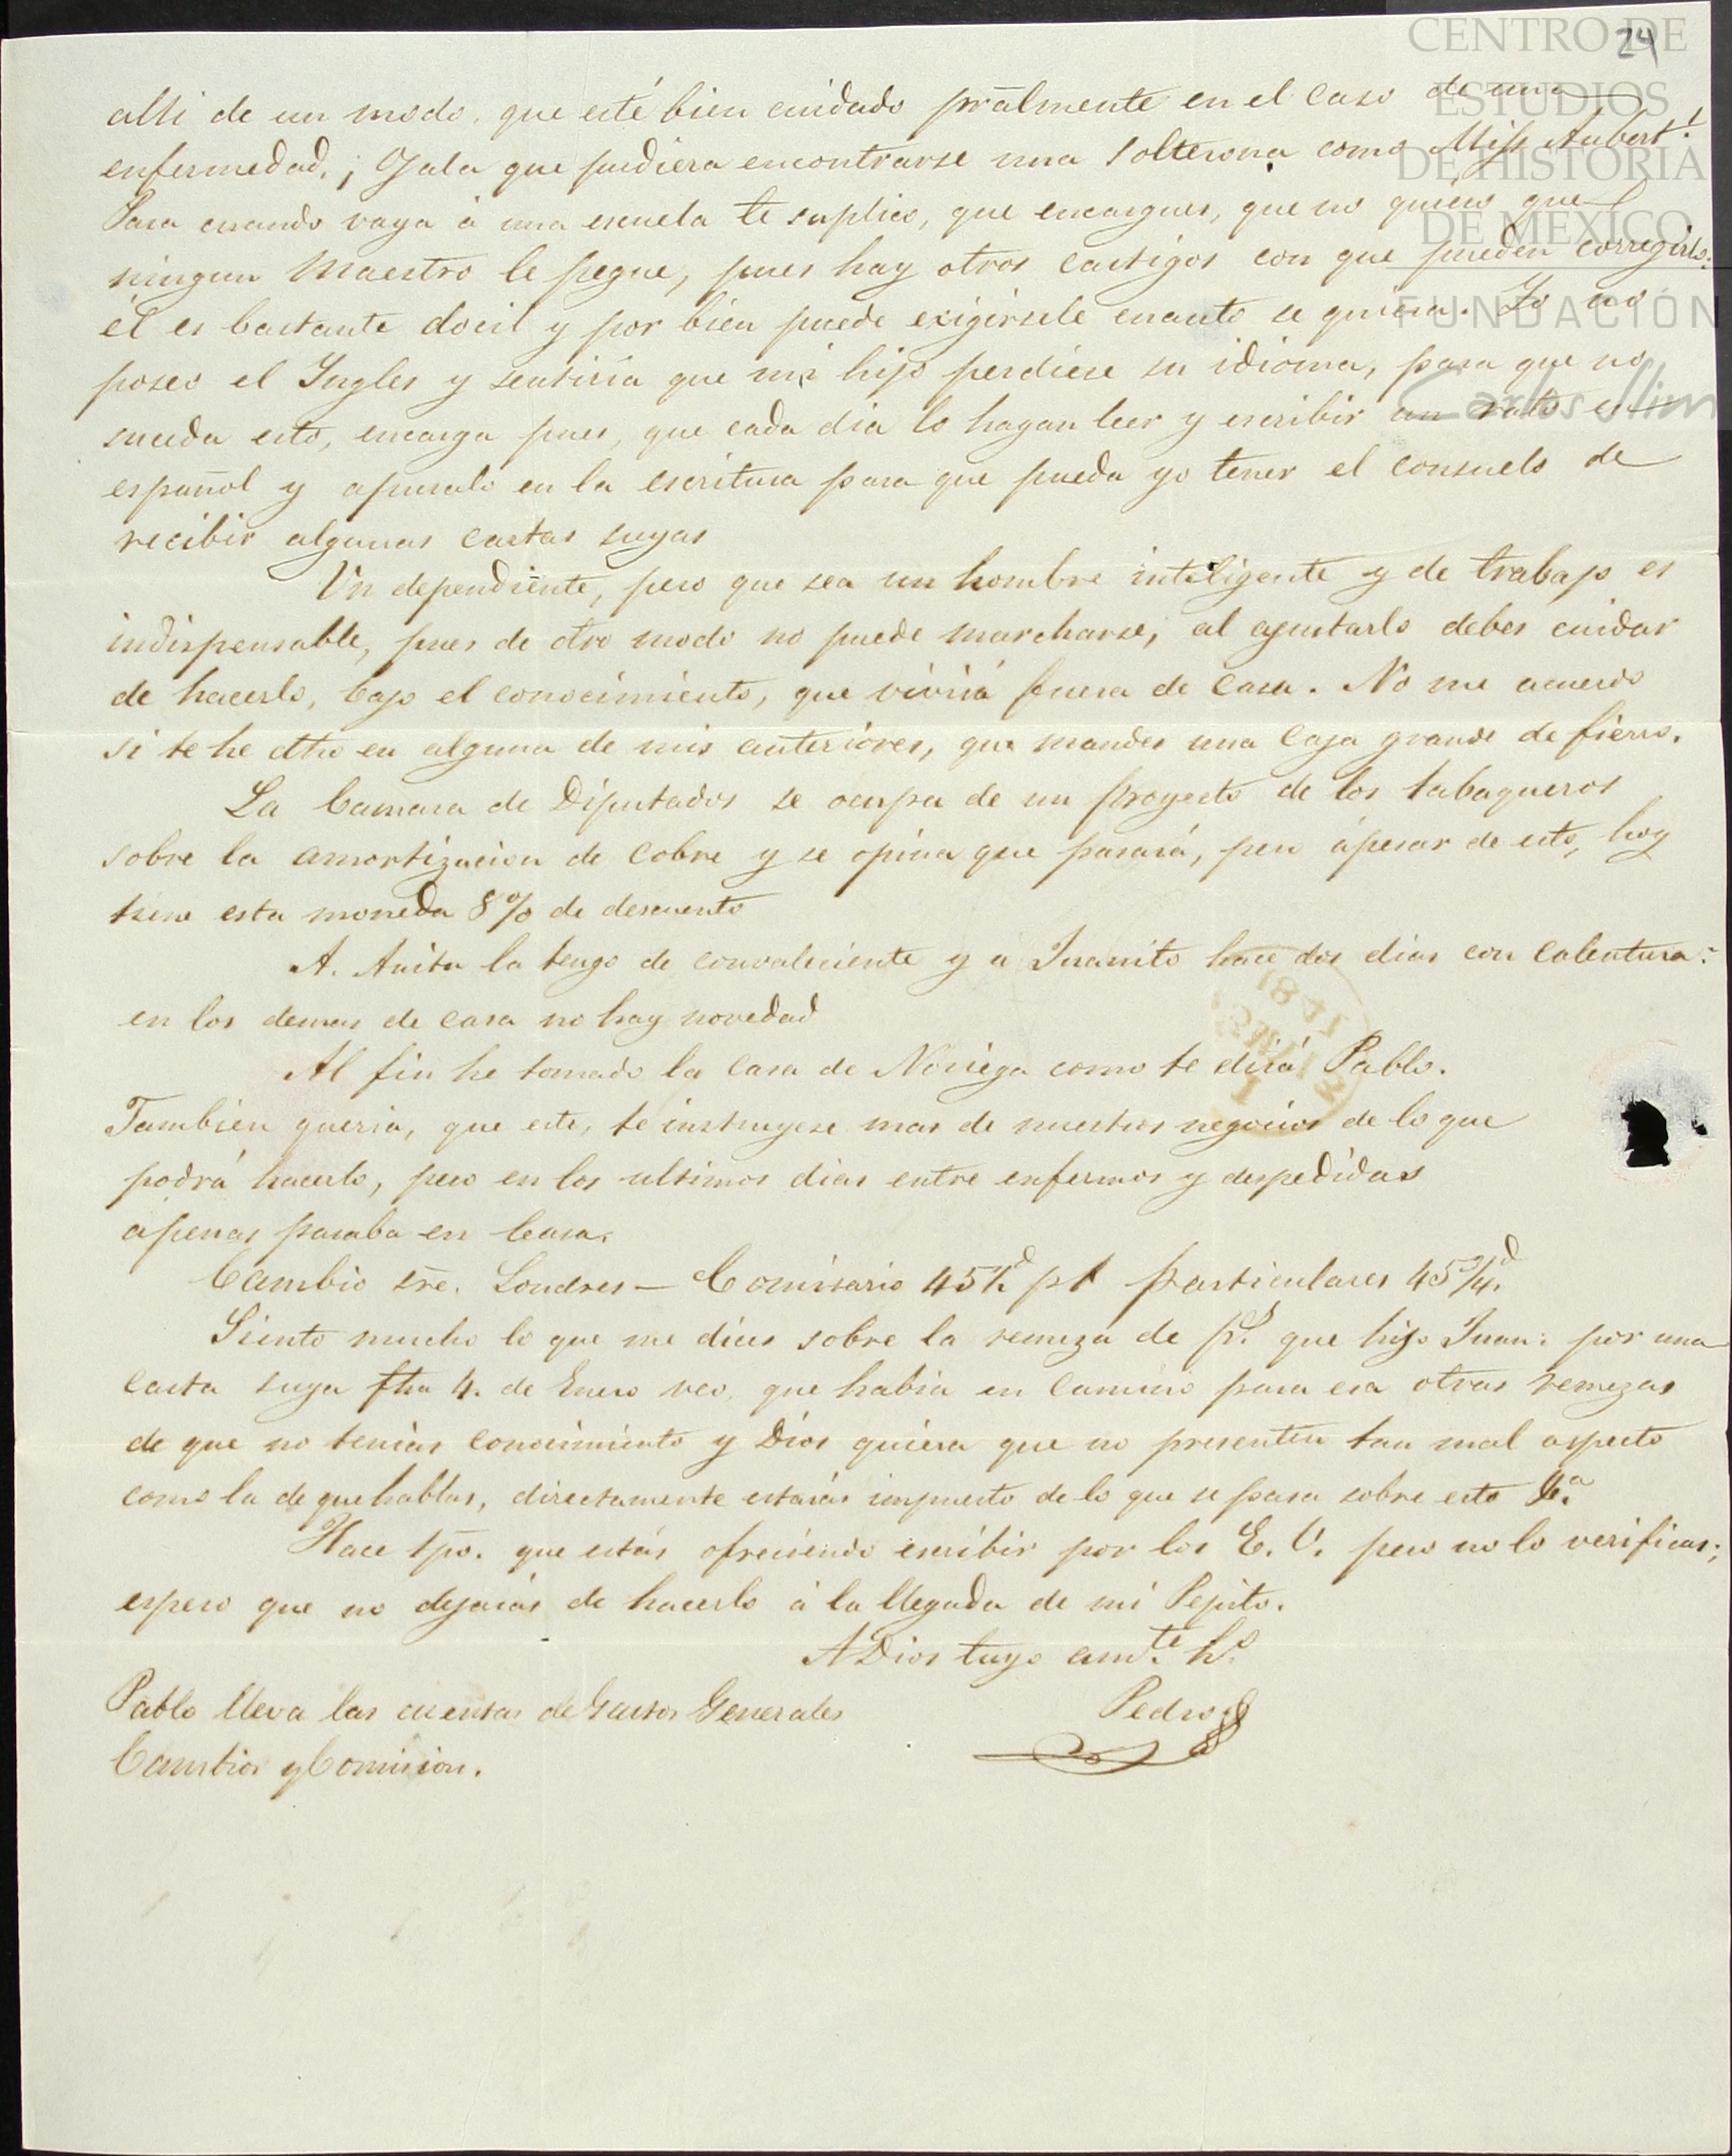 24
CENTRO DE
ESTUDIOS
DE HISTORIA
DE MEXICO
FUNDACIÓN
Carlos Slim
alli de un modo, que esté bien cuidado prālmente en el caso de una
enfermedad, ¡Ojala que pudiera encontrarse una solterona como Miss Aubert!
Para cuando vaya á una escuela te suplico, que encargues, que no quiero que
ningun Maestro le pegue, pues hay otros castigos con que pueden corregirlo:
él es bastante docil y por bien puede exigirsele cuanto se quiera. Yo no
poseo el Yngles y sentiria que mi hijo perdiese su idioma, para que no
suceda esto, encarga pues, que cada dia lo hagan leer y escribir un rato en
español y apuralo en la escritura para que pueda yo tener el consuelo de
recibir algunas cartas suyas
Un dependiente, pero que sea un hombre inteligente y de trabajo es
indispensable, pues de otro modo no puede marcharse, al ajustarlo debes cuidar
de hacerlo, bajo el conocimiento, que vivirá fuera de casa. No me acuerdo
si te he dho en alguna de mis anteriores, que mandes una caja grande de fierro.
La Camara de Diputados se ocupa de un proyecto de los tabaqueros
sobre la amortizacion de cobre y se opina que pasará, pero ápesar de esto, hoy
tiene esta moneda 8% de descuento
A. Anita la tengo de convaleciente y a Juanito hace dos dias con calentura:
en los demas de casa no hay novedad
Al fin he tomado la casa de Noriega como te dirá Pablo.
Tambien queria, que este, te instruyese mas de nuestros negocios de lo que
podrá hacerlo, pero en los ultimos dias entre enfermos y despedidas
ápenas paraba en Casa.
Cambio sre. Londres — Comisario 45½ᵈ p% particulares 45¾ᵈ.
Siento mucho lo que me dices sobre la remeza de pˢ. que hizo Juan: por una
carta suya fha 4. de Enero veo, que habia en camino para esa otras remezas
de que no tenias conocimiento y Dios quiera que no presenten tan mal aspecto
como la de que hablas, directamente estarás impuesto de lo que se pasa sobre esto
Hace tpo. que estás ofreciendo escribir por los E. U. pero no lo verificas;
espero que no dejarás de hacerlo á la llegada de mi Pepito.
A Dios tuyo amᵗᵉ. hº.
Pedro
Pablo lleva las cuentas de Gastos Generales
Cambios y Comision.
1841